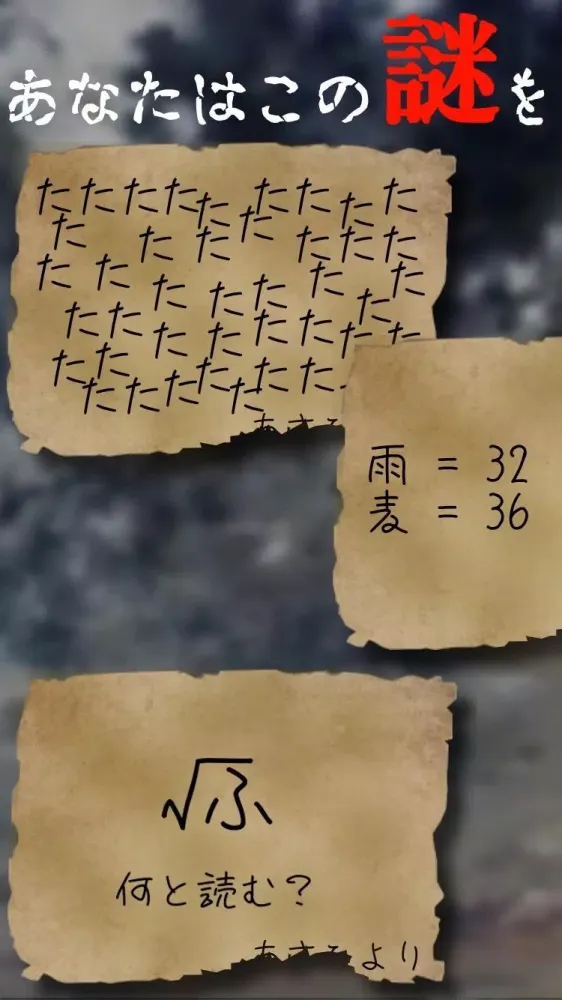 あなたはこの謎を
たたたたたたたたた
たたたたたたた
たたたたたたたた
たたたたたたたた
たたたたたたたたた
雨 = 32
麦 = 36
√ふ
何と読む？
より